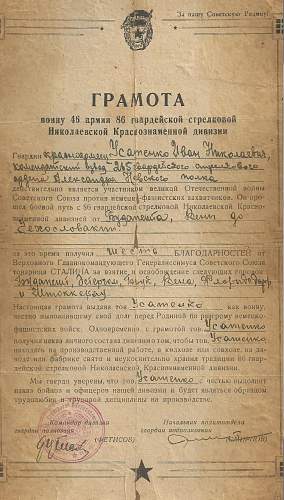 За нашу Советскую Родину!
ГРАМОТА
воину 46 армии 86 гвардейской стрелковой
Николаевской Краснознаменной дивизии
Гвардии красноармеец Усатенко Иван Николаевич,
комендантский взвод 265 гвардейского стрелкового
ордена Александра Невского полка
действительно является участником великой Отечественной войны
Советского Союза против немецко-фашистских захватчиков. Он про-
шел боевой путь с 86 гвардейской стрелковой Николаевской Красно-
знаменной дивизией от Будапешта, Вены до
Чехословакии
за это время получил шесть БЛАГОДАРНОСТЕЙ от
Верховного Главнокомандующего Генералиссимуса Советского Союза
товарища СТАЛИНА за взятие и освобождение следующих городов
Будапешт, Эстергом, Брук, Вена,
и Штоккерау
Настоящая грамота выдана тов. Усатенко как воину,
честно выполнившему свой долг перед Родиной по разгрому немецко-
фашистских войск. Одновременно с грамотой тов. Усатенко
получил наказ личного состава дивизии о том, чтобы тов. Усатенко
находясь на производственной работе, в колхозе или совхозе, на за-
воде или фабрике свято и неукоснительно хранил традиции 86 гвар-
дейской стрелковой Николаевской Краснознаменной дивизии.
Мы твердо уверены, что тов. Усатенко с честью выполнит
наказ бойцов и офицеров нашей дивизии и будет являться образцом
трудолюбия и трудовой дисциплины на производстве.
Командир дивизии
гвардии полковник
(ФЕТИСОВ)
Начальник политотдела
гвардии подполковник